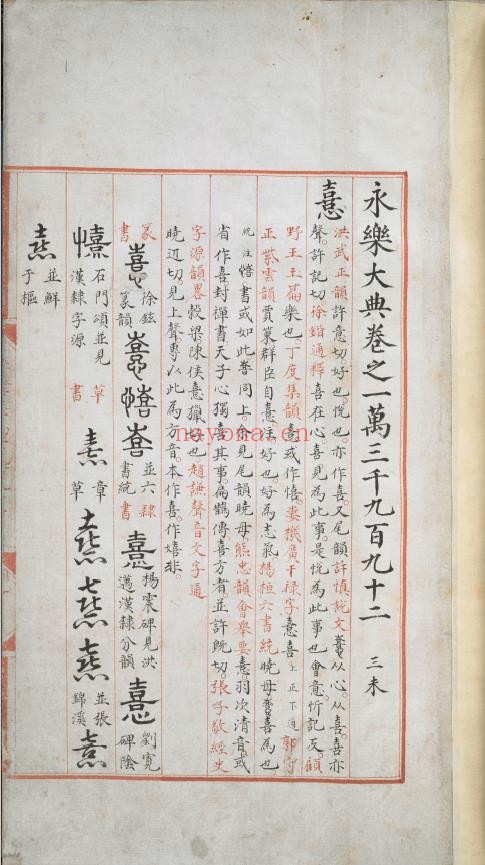 永樂大典卷之一萬三千九百九十二　三未
憙
洪武正韻許意切好也悅也亦作喜又尾韻許慎說文从心从喜喜亦
聲許記切徐鍇通釋喜在心喜見為此事是悅為此事也會意忻記反顧
野王玉篇樂也丁度集韻憙或作憘婁機廣干祿字憙喜上正下通郭守
正紫雲韻賈篆群臣自憙注好也好為志氣楊桓六書統曉母喜為也
統注憘書或如此同上余見尾韻曉母熊忠韻會舉要憙羽次清音或
省作喜封禪書天子心獨喜其事扁鵲傳喜方者並許既切張子敬經史
字源韻畧穀梁陳侯憙獵好也趙謙聲音文字通
曉近切見上聲專以此為方音本作喜作嬉非
篆書 徐鉉篆韻 並六書統 隸書 憙 楊震碑見洪邁漢隸分韻 憙 劉寬碑陰
憘 石門頌並見漢隸字源 草書 章草 並張錦溪
並鮮于樞
nayona.cn